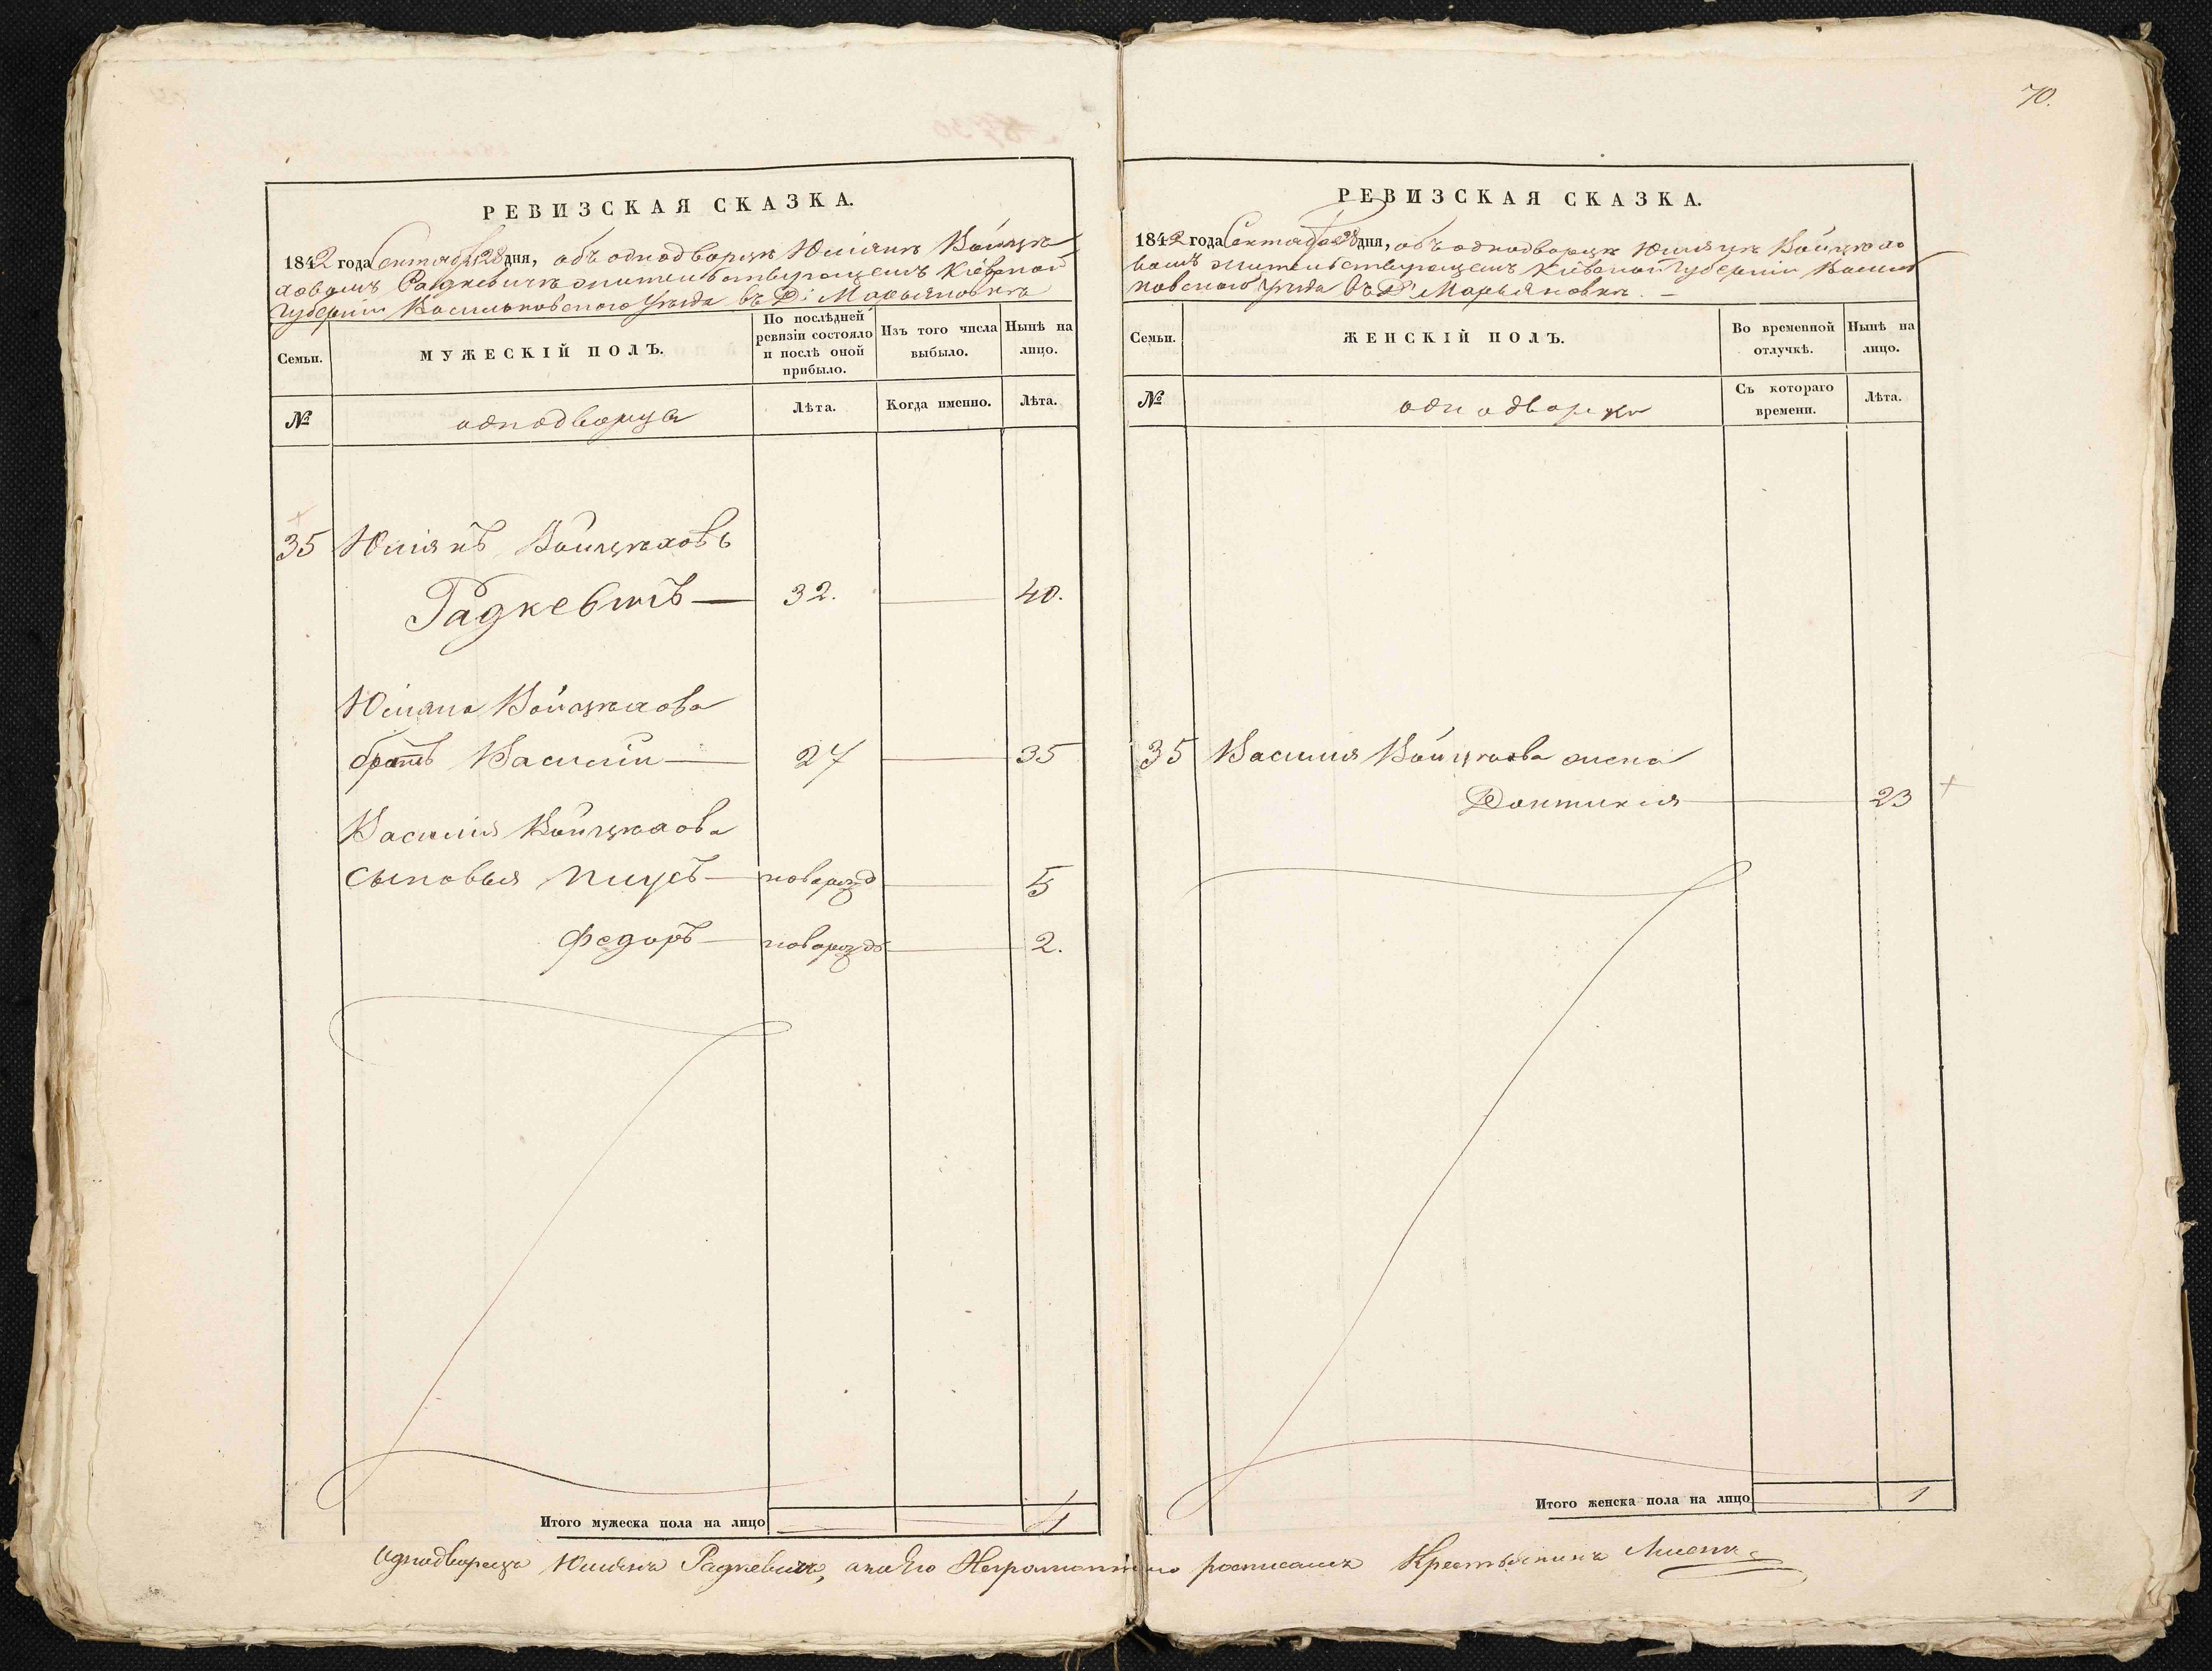 70.
РЕВИЗСКАЯ СКАЗКА.
1842 года Сентября 28 дня, объ однодворцѣ Юліянѣ Войцѣ
ховомъ Радкевичѣ жительствующемъ Кіевской
Губерніи Васильковского Уѣзда въ Д: Марьяновкѣ
Семьи.
МУЖЕСКІЙ ПОЛЪ.
По послѣдней ревизіи состояло и послѣ оной прибыло.
Изъ того числа выбыло.
Нынѣ на лицо.
№
однодворцы
Лѣта.
Когда именно.
Лѣта.
35 Юліянъ Войцѣховъ
Радкевичъ — 32. — 40.
Юліяна Войцѣхова
братъ Василій — 27 — 35
Василія Войцѣхова
сыновья Піусъ — новорожд — 5
Федоръ — новорожд — 2.
Итого мужеска пола на лицо 4
РЕВИЗСКАЯ СКАЗКА.
1842 года Сентября 28 дня, объ однодворцѣ Юліянѣ Войцѣхо
вомъ жительствующемъ Кіевской Губерніи Василь
ковского Уѣзда въ Д: Марьяновкѣ. —
Семьи.
ЖЕНСКІЙ ПОЛЪ.
Во временной отлучкѣ.
Нынѣ на лицо.
№
однодворки
Съ котораго времени.
Лѣта.
35 Василія Войцѣхова жена
23
Итого женска пола на лицо 1
Однодворецъ Юліянъ Радкевичъ, а по Его Неграмотнію росписался Крестьянинъ